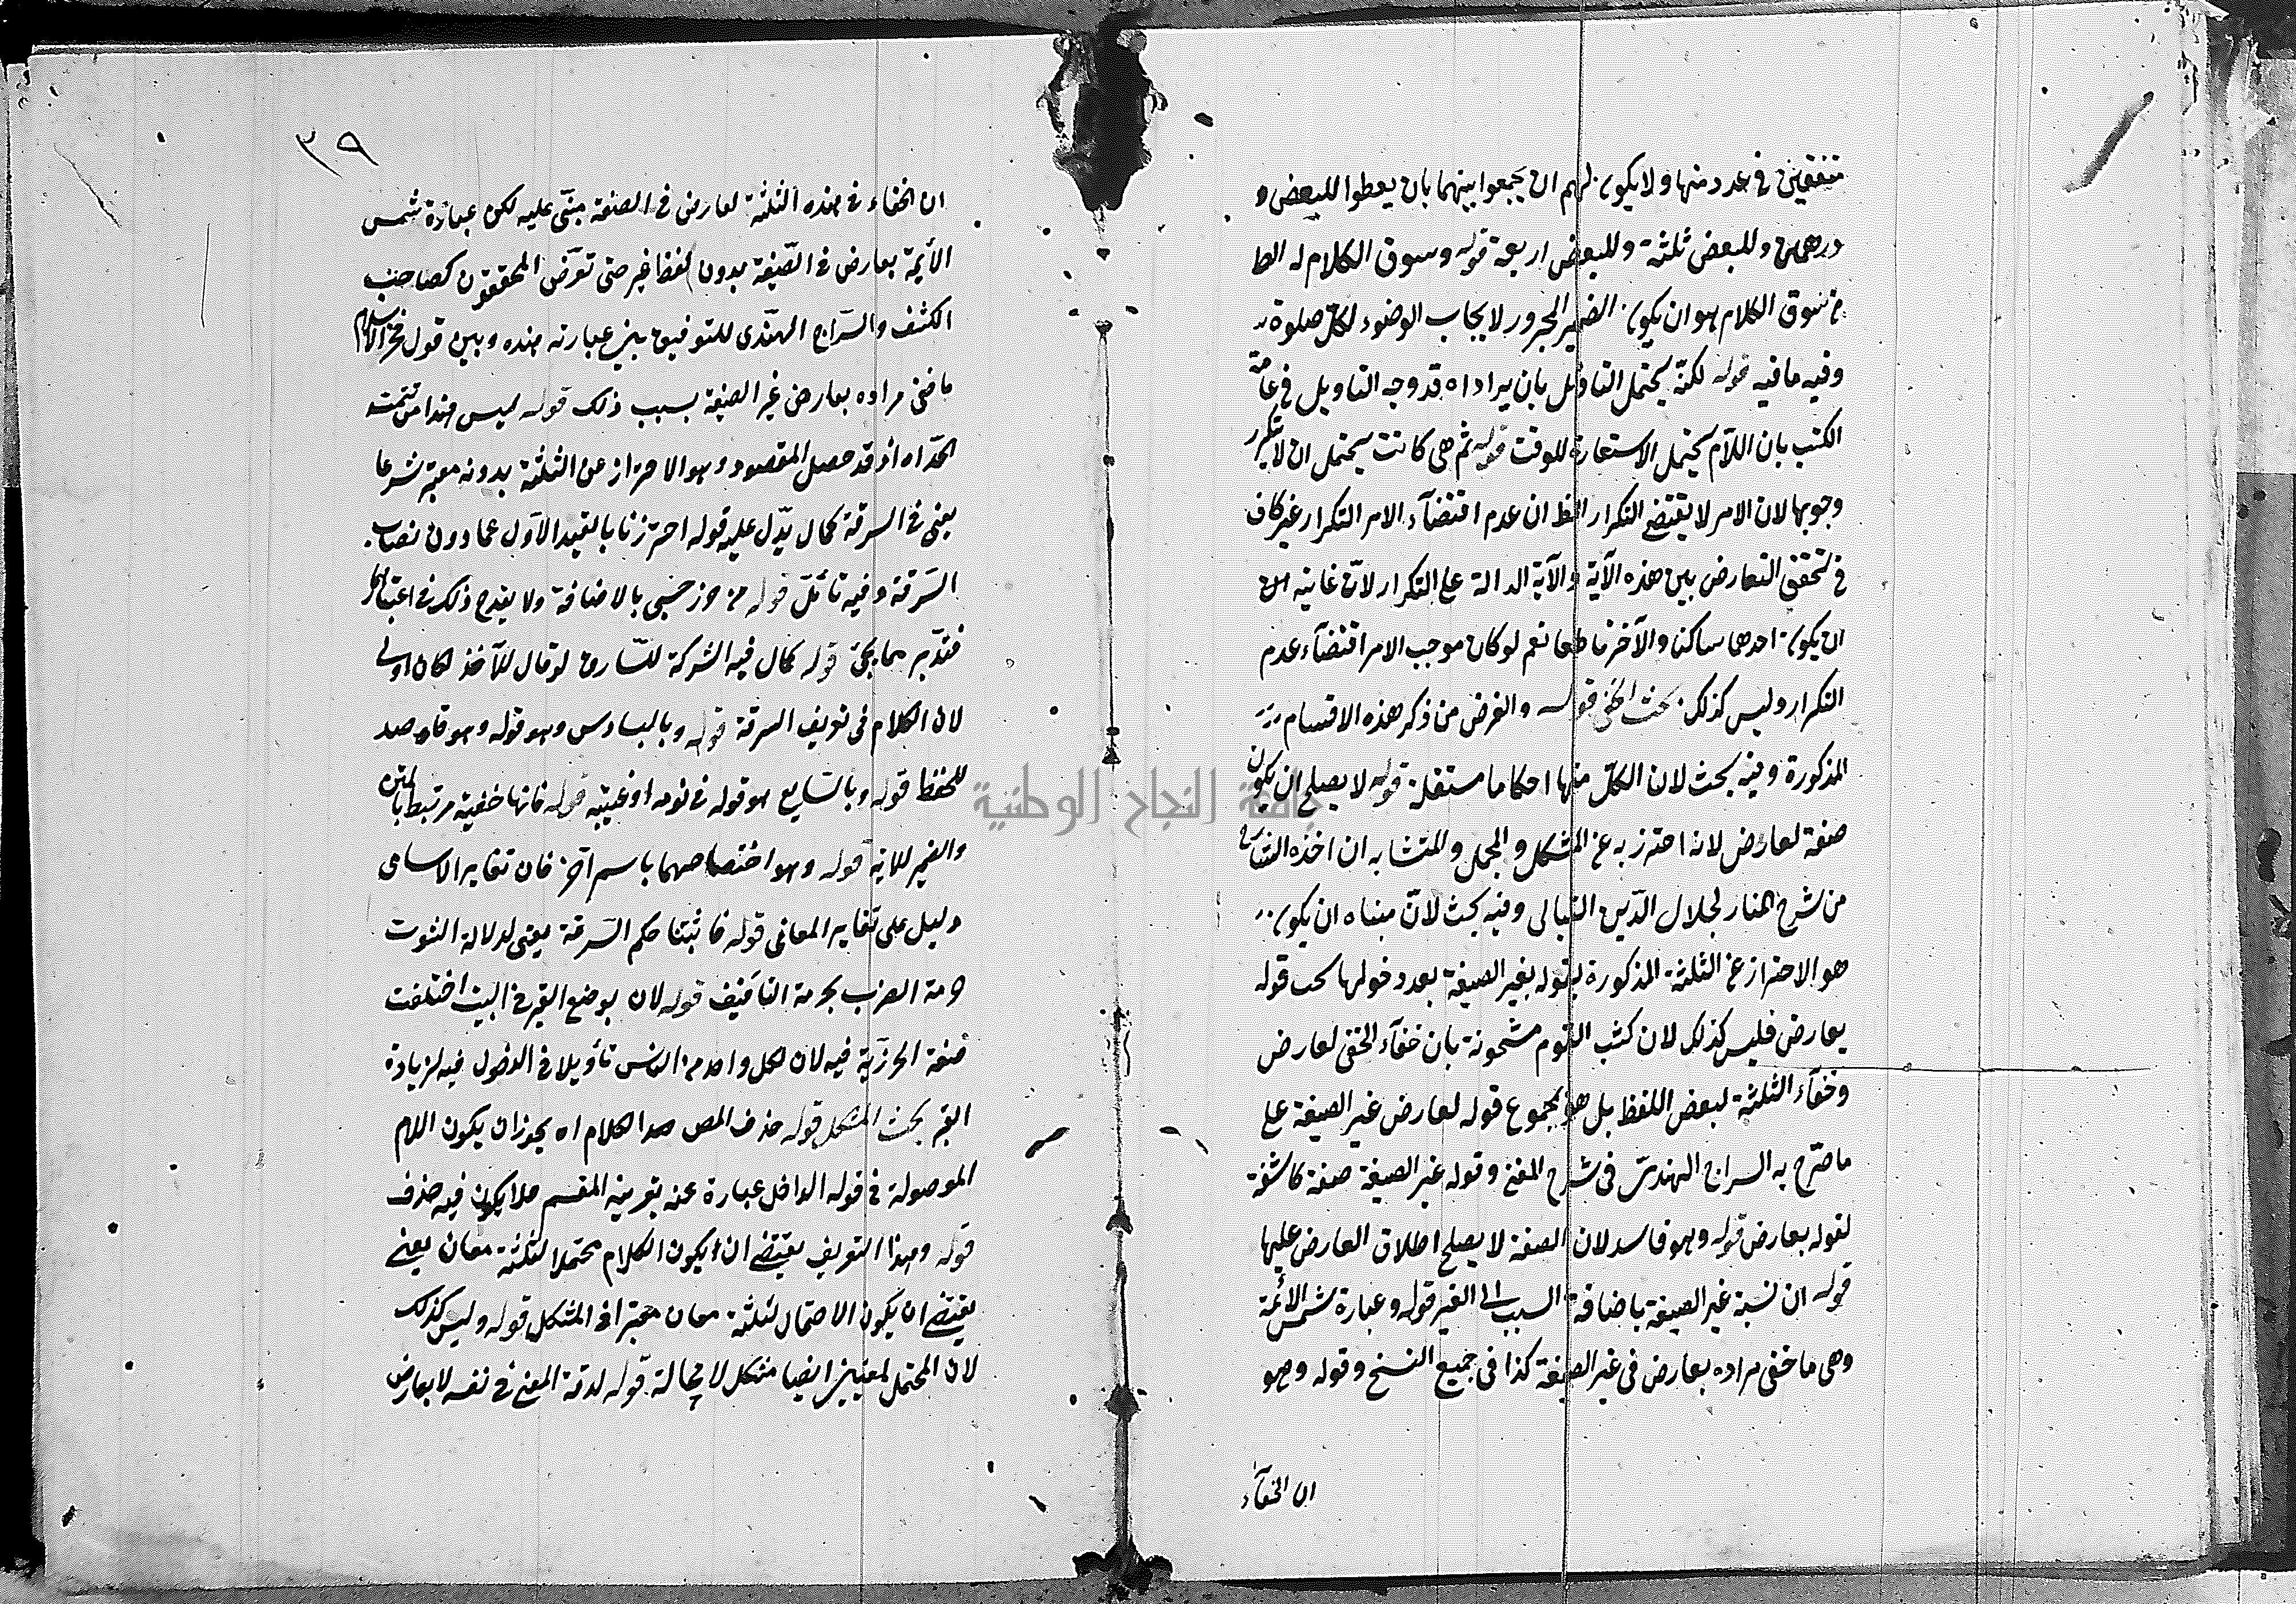 متفقين في عدد منها ولا يكون لهم ان يجمعوا بينهما بان يعطوا للبعض و
درهمين وللبعض ثلثة وللبعض اربعة قوله وسوق الكلام له الظ
من سوق الكلام هو ان يكون الضمير المجرور لايجاب الوضوء لكل صلوة
وفيه ما فيه قوله لكنّه يحتمل التاويل بان يراد اه قد وجه التاويل في عامّة
الكتب بان اللّام يحتمل الاستعارة للوقت قوله ثم هي كانت يحتمل ان لا يتكرر
وجوبها لان الامر لا يقتضي التكرار الظ ان عدم اقتضآء الامر التكرار غير كاف
في تحقق التعارض بين هذه الآية والآية الدالة على التكرار لانّ غايته
ان يكون احدهما ساكتا والآخر ناطقا نعم لو كان موجب الامر اقتضآء عدم
التكرار وليس كذلك بحث الخفي قوله والغرض من ذكر هذه الاقسام
المذكورة وفيه بحث لان الكلّ منها احكاما مستقلة قوله لا يصلح ان يكون
صفة لعارض لانه احترز به عن المشكل والمجمل والمتشابه ان اخذه الشارح
من شرح المنار لجلال الدّين التبالى وفيه بحث لانّ مبناه ان يكون
هو الاحتراز عن الثلثة المذكورة بقوله بغير الصيغة بعد دخولها تحت قوله
بعارض فليس كذلك لان كتب القوم مشحونة بان خفآء الخفى لعارض
وخفآء الثلثة لبعض اللفظ بل هو مجموع قوله لعارض غير الصيغة على
ما صرّح به السراج الهندىّ فى شرح المغنى وقوله غير الصيغة صفة كاشفة
لقوله بعارض قوله وهو فاسد لان الصفة لا يصلح اطلاق العارض عليها
قوله ان نسبة غير الصيغة باضافة السبب الى الغير قوله وعبارة شمس الائمّة
وهى ما خفى مراده بعارض فى غير الصيغة كذا فى جميع النسخ وقوله وهو
ان الخفآء
٣٩
ان الخفاء في هذه الثلثة لعارض في الصيغة مبنّى عليه لكن عبارة شمس
الأيمّة بعارض في الصّيغة بدون لفظ غير حتى تعرّض المحققون كصاحب
الكشف والسّراج الهنّدى للتوفيق بين عبارته هذه وبين قول فخر الاسلام
ما خفى مراده بعارض غير الصيغة بسبب ذلك قوله ليس هذا من تتمته
الحدّ اه اذ قد حصل المقصود وهو الاحتراز عن الثلثة بدونه معتبر شرعا
يعنى في السرقة كمال يدّل عليه قوله احترزنا بالقيد الآول عما دون نصاب
السّرقة وفيه تأمّل قوله من حرز حسّى بالاضافة ولا يقدح ذلك في اعتبارها
فتدّبر بما يجئ قوله كمال فيه الشركة للسّارق لو قال للآخذ لكان اولى
لان الكلام في تعريف السرقة قوله وبالسادس وهو قوله وهو قاصد
للحفظ قوله وبالسّابع هو قوله في نومه او غيبته قوله فانها خفية مرتبط بالمتن
والضمير للاية قوله وهو اختصاصهما باسم آخر فان تغاير الاسامى
دليل على تغاير المعانى قوله فاثبتنا حكم السّرقة يعنى لدلالة الثبوت
حرمة الضرب بحرمة التافيف قوله لان بوضع القبر في البيت اختلفت
صفة الحرزيّة فيه لان لكل واحد من الناس تأويلا في الدخول فيه لزيادة
القبر بحث المشكل قوله حذف المص صدا لكلام اه يجوز ان يكون اللام
الموصولة في قوله الداخل عبارة عنه بقرينة المقسم فلا يكون فيه حذف
قوله وهذا التعريف يقتضى ان يكون الكلام محتملا لثلثة معان يعنى
يقتضى ان يكون الاحتمال لثلثة معان معتبرا في المشكل قوله وليس كذلك
لان المحتمل لمعنيين ايضا مشكل لا محالة قوله لدقة المعنى في نفسه لا بعارض
جامعة النجاح الوطنية